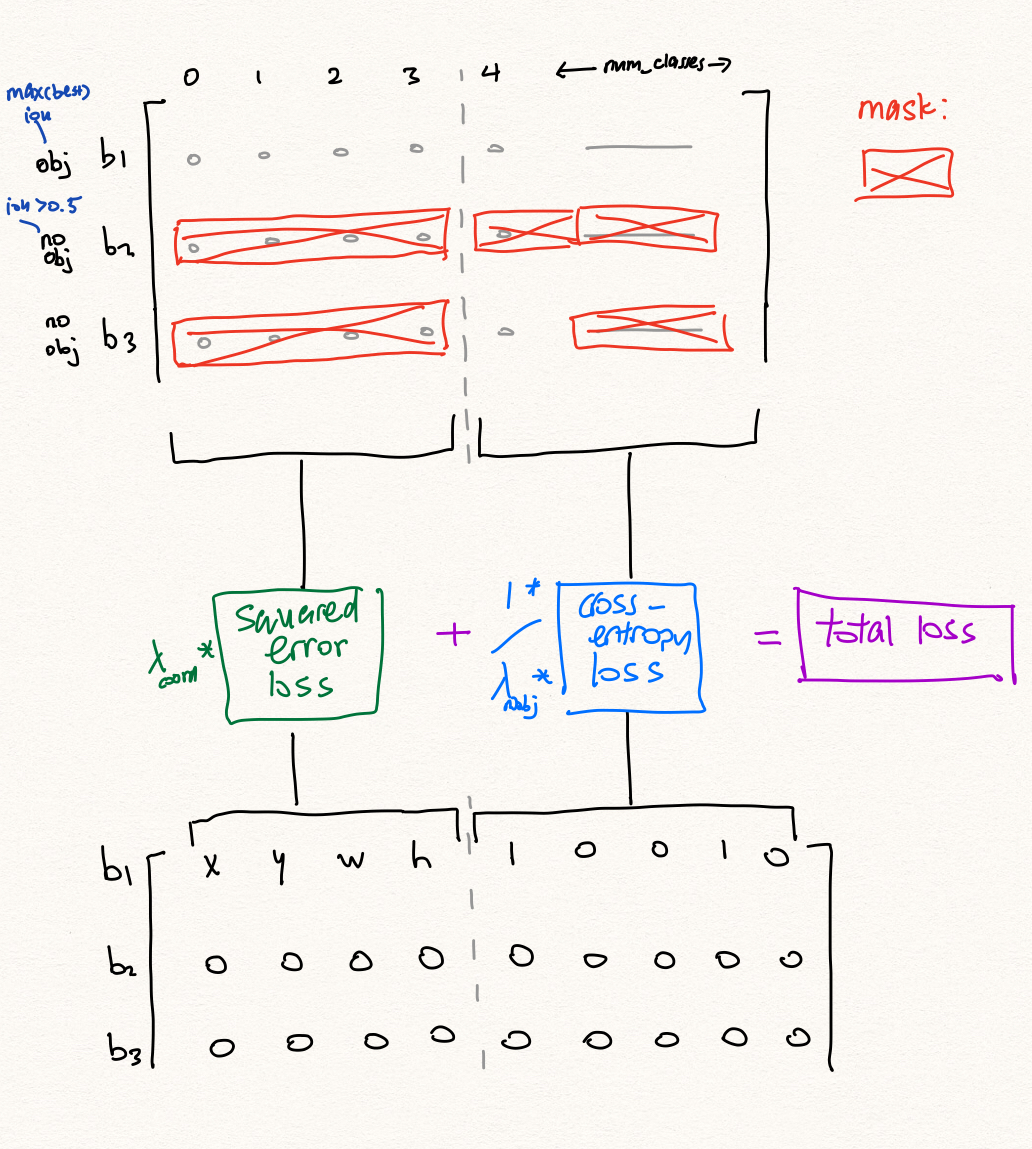 0 1 2 3 4 ← num_classes →
max(best)
iou
obj b1
mask:
iou >0.5
no
obj b2
no
obj b3
λcoord*
squared
error
loss
+
1*
λnoobj*
cross-
entropy
loss
=
total loss
b1 x y w h 1 0 0 1 0
b2 0 0 0 0 0 0 0 0 0
b3 0 0 0 0 0 0 0 0 0